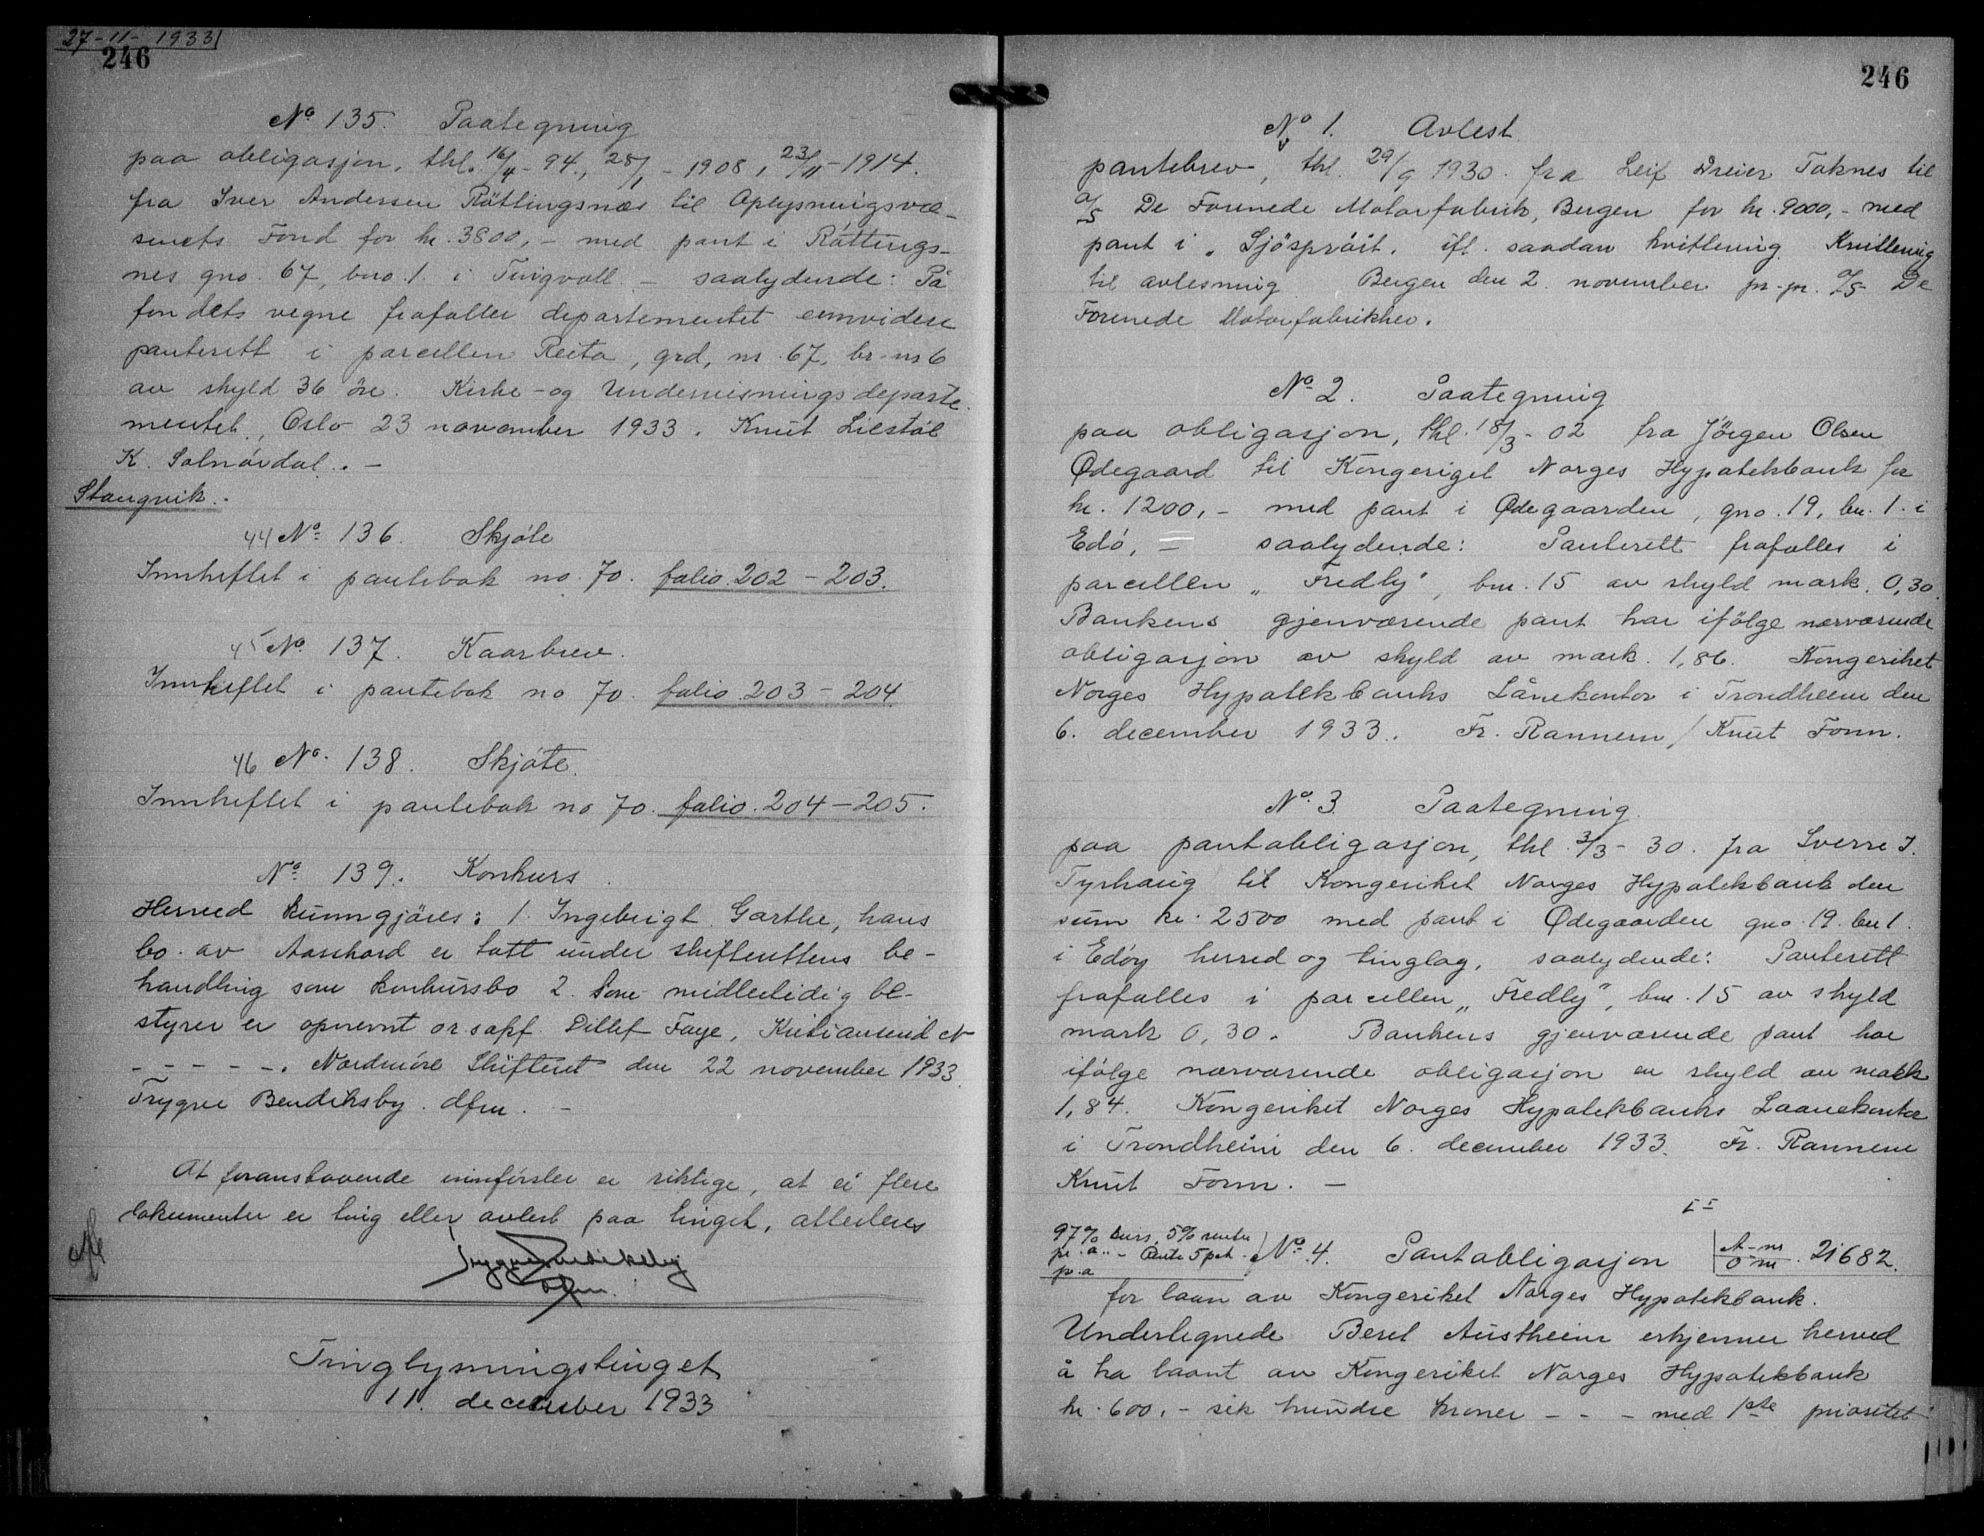 27-11-1933
246
No 135. Paategning
paa obligasjon, thl. 16/4-94., 28/1-1908, 23/11-1914.
fra Iver Andersen Röttingsnæs til Oplysningsvæ-
senets Fond for kr. 3800,- med pant i Röttings-
nes gno. 67, bno. 1. i Tingvoll - saalydende: På
fondets vegne frafaller departementet
panterett i parcellen Reita, grd, nr. 67, br-nr 6
av skyld 36 öre. Kirke-og Undervisningsdeparte-
mentet, Oslo 23 november 1933. Knut Liestöl
K. Solnördal. -
Stangvik.
44 No 136. Skjöte
Innheftet i pantebok no. 70. folio 202-203.
45 No. 137. Kaarbrev.
Innheftet i pantebok no 70. folio 203-204
46 No. 138. Skjöte.
Innheftet i pantebok no 70. folio. 204-205.
No 139. Konkurs.
Herved kunngjöres: 1. Ingebrigt Garthe, hans
bo. av Aasskard er tatt under skifterettens be-
handling som konkursbo 2. Som midlertidig be-
styrer er opnevnt or sapf. Ditlef Faye, Kristiansund N
- - - - -. Nordmöre Skifterett den 22 november 1933.
Trygve Bendiksby. dfm. -
At foranstaaende innförsler er riktige, at ei flere
dokumenter er ting eller avlest paa tinget, attesteres
Trygve Bendiksby
dfm.
Tinglysningstinget
11. december 1933
246
No 1. Avlest
pantebrev, thl. 29/9 1930. fra Leif Dreier Toknes til
A/S De Forenede Motorfabrik, Bergen for kr. 9000,- med
pant i „Sjöspröit. ifl. saadan kvittering. Kvittering
til avlesning Bergen den 2. november pr. pr. A/S De
Forenede Motorfabrikker.
No 2. Paategning
paa obligasjon, thl. 18/3-02 fra Jörgen Olsen
Ødegaard til Kongeriget Norges Hypotekbank for
kr. 1200,- med pant i Ødegaarden, gno. 19, bn. 1. i
Edö, - saalydende: Panterett frafalles i
parcellen „Fredly", bnr. 15 av skyld mark. 0,30.
Bankens gjenværende pant har ifölge nærværende
obligasjon av skyld av mark. 1,86. Kongeriket
Norges Hypotekbanks Lånekontor i Trondheim den
6. december 1933. Fr. Rannem / Knut Fonn.
No. 3. Paategning.
paa pantobligasjon, thl. 3/3-30. fra Sverre I.
Tyrhaug til Kongeriket Norges Hypotekbank den
sum kr. 2500 med pant i Ødegaarden gno. 19. bn 1.
i Edöy herred og tinglag, saalydende: Panterett
frafalles i parcellen „Fredly", bnr. 15 av skyld
mark 0,30. Bankens gjenværende pant har
ifölge nærværende obligasjon en skyld av mark
1,84. Kongeriket Norges Hypotekbanks Laanekontor
i Trondheim den 6. december 1933. Fr. Rannem
Knut Fonn. -
97% kurs, 5% rente
pr. a.
p. a
No. 4. Pantobligasjon 21682.
for laan av Kongeriket Norges Hypotekbank.
Underlegnede Beret Austheim erkjenner herved
å ha laant av Kongeriket Norges Hypotekbank
kr. 600,- seks hundre kroner - - - med 1ste prioritet